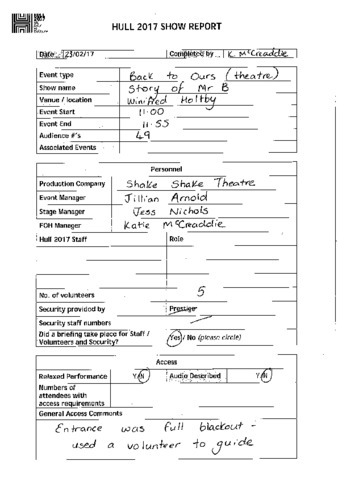 HULL 2017 SHOW REPORT
Date: 23/02/17 Completed by K. McCreaddie
Event type Back to Ours (theatre)
Show name Story of Mr B
Venue / location Winifred Holtby
Event Start 11.00
Event End 11.55
Audience #'s 49
Associated Events
Personnel
Production Company Shake Shake Theatre
Event Manager Jillian Arnold
Stage Manager Jess Nichols
FOH Manager Katie McCreaddie
Hull 2017 Staff Role
No. of volunteers 5
Security provided by Prestige
Security staff numbers
Did a briefing take place for Staff / Yes / No (please circle)
Volunteers and Security?
Access
Relaxed Performance Y/N Audio Described Y/N
Numbers of
attendees with
access requirements
General Access Comments
Entrance was full blackout -
used a volunteer to guide